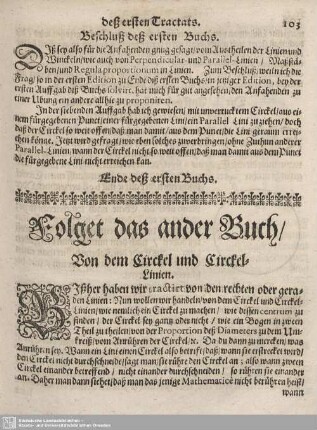 deß ersten Tractats. 103
Beschluß deß ersten Buchs.
Diß sey also für die Anfahenden gnug gesagt/ vom Abtheilen der Linien und
Winckeln/ wie auch von Perpendicular- und Parallel-Linien / Maßstä-
ben/ und Regula proportionum in Linien. Zum Beschluß/ weil nich die
Frag/ so in der ersten Edition zu Ende deß ersten Buchs/ in jeniger Edition, bey der
ersten Auffgab deß Buchs solvirt, hat mich für gut angesehen/ den Anfahenden zu
einer Ubung ein andere allhie zu proponiren.
In der siebenden Auffgab hab ich gewiesen/ mit unverrucktem Circkel/ auß ei-
nem fürgegebenen Punct einer fürgegebenen Lini ein Parallel-Lini zu ziehen/ doch
daß der Circkel so weit offen/ daß man damit/ auß dem Punct/ die Lini geraum errei-
chen könne. Jetzt wird gefragt/ wie eben solches zuwerbringen/ ohne Zuthun anderer
Parallel-Linien, wann der Circkel nicht so weit offen/ daß man damit auß dem Punct
die fürgegebene Lini nicht erreichen kan.
Ende deß ersten Buchs.
Folget das ander Buch/
Von dem Circkel und Circkel-
Linien.
Bißher haben wir tractirt von den rechten oder gera-
den Linien: Nun wollen wir handeln/ von dem Circkel und Circkel-
Linien/ wie nemlich ein Circkel zu machen / wie dessen centrum zu
finden / der Circkel sey gantz oder nicht / wie ein Bogen in zween
Theil zu theilen/ von der Proportion deß Diameters zu dem Um-
kreiß/ vom Anrühren der Circkel/ ec. Da du dann zu mercken/ was
Anrühren sey. Wann ein Lini einen Circkel also betrifft/ daß/ wann sie erstreckt wird/
den Circkel nicht durchschneidet/ sagt man/ sie rühre den Circkel an; also wann zween
Circkel einander betreffend / nicht einander durchschneiden / so rühren sie einander
an. Daher man dann siehet/ daß man das jenige Mathematicè nicht berühren heist/
wann